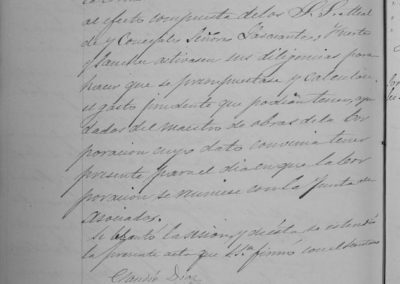 al efecto compuesta de los S. S. Alcal
de y Concejales Señores Lasarantes, Puerto
y Sanchez activasen sus diligencias para
hacer que se presupuestase y calculase
el gasto prudente que podian tener, ayu
dados del maestro de obras de la Cor
poracion cuyo dato convenia tener
presente para el dia en que la Cor
poracion se reuniese con la Junta de
Asociados.
Se levantó la sesion, y de esta se estendió
la presente acta que S. Sª firmó con el Secretario
Claudio Diaz